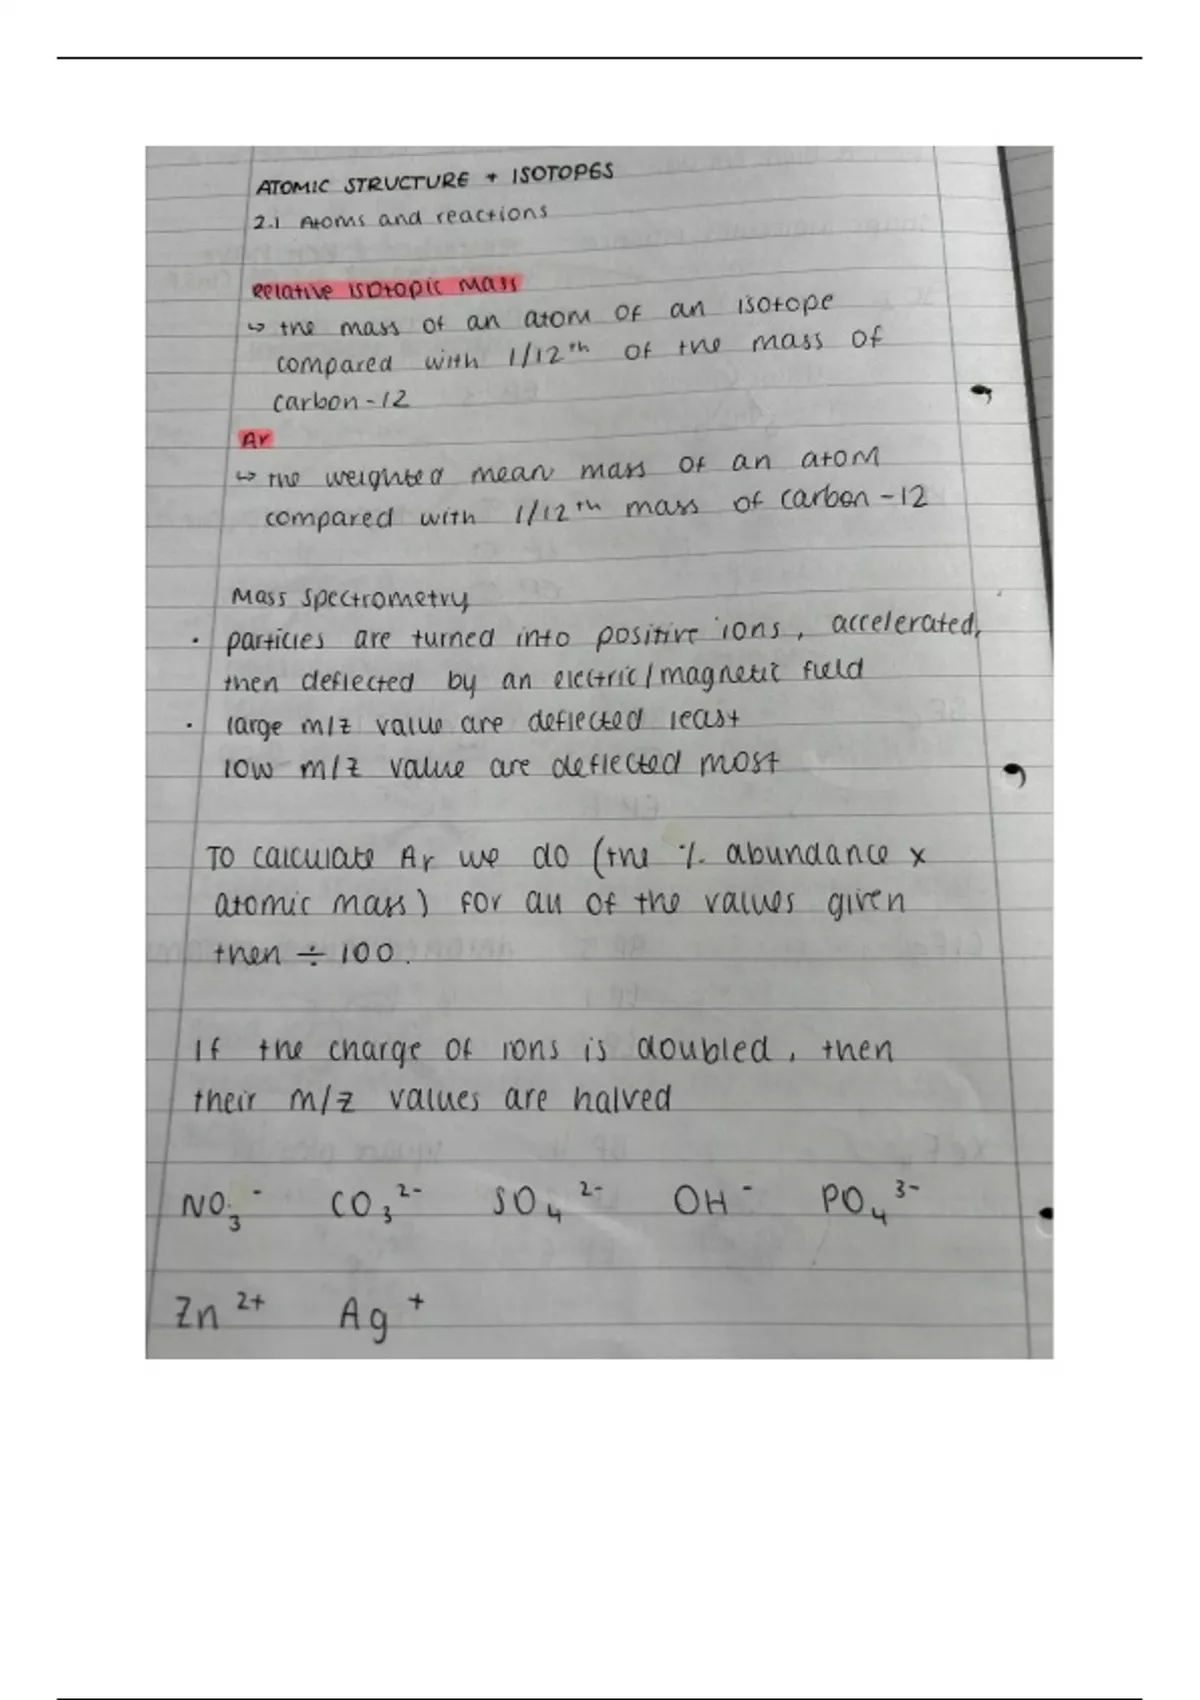 ATOMIC STRUCTURE + ISOTOPES
2.1 Atoms and reactions
Relative isotopic mass
↳ the mass of an atom of an isotope
compared with 1/12ᵗʰ of the mass of
carbon-12
Ar
↳ the weighted mean mass of an atom
compared with 1/12ᵗʰ mass of carbon-12
Mass spectrometry
• particles are turned into positive ions, accelerated,
then deflected by an electric/magnetic field
• large m/z value are deflected least
low m/z value are deflected most
To calculate Ar we do (the % abundance x
atomic mass) for all of the values given
then ÷ 100.
If the charge of ions is doubled, then
their m/z values are halved
NO₃⁻ CO₃²⁻ SO₄²⁻ OH⁻ PO₄³⁻
Zn²⁺ Ag⁺